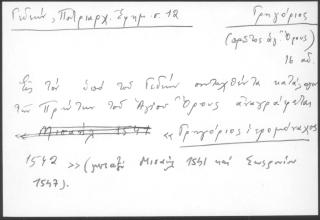 Γεδεών, Πατριαρχ. Εφημ. σ. 12
Γρηγόριος
(πρῶτος ἁγ. Ὄρους)
16 αἰ.
Εἰς τόν ὑπό τοῦ Γεδεών συνταχθέντα κατάλογον
τῶν Πρώτων τοῦ Ἁγίου Ὄρους ἀναγράφεται
Μισαήλ 1541 « Γρηγόριος ἱερομόναχος
1542 » (μεταξύ Μισαήλ 1541 καί Σωφρονίου
1547).